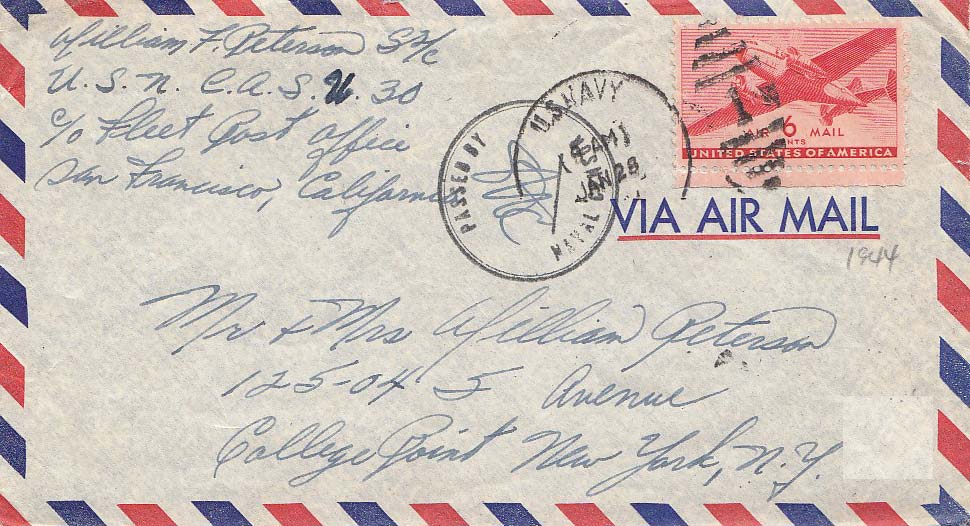 William F. Peterson S2/c
U.S.N. C.A.S.U. 30
c/o Fleet Post Office
San Francisco, California
PASSED BY
NAVAL CENSOR
U.S. NAVY
(AM)
JAN 28
1
AIR 6 MAIL
CENTS
UNITED STATES OF AMERICA
VIA AIR MAIL
1944
Mr & Mrs William Peterson
125-04 5 Avenue
College Point New York, N.Y.